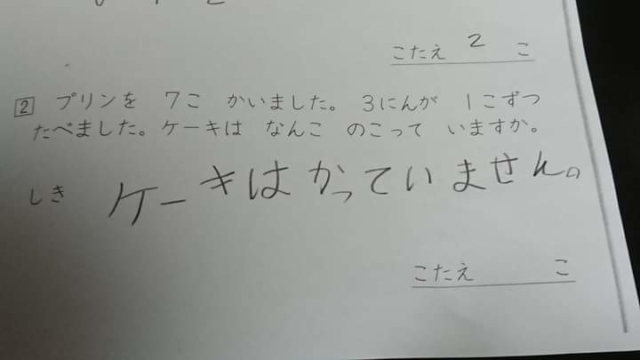 こたえ 2 こ
2 プリンを 7こ かいました。 3にんが 1こずつ
たべました。ケーキは なんこ のこって いますか。
しき ケーキはかっていません。
こたえ こ